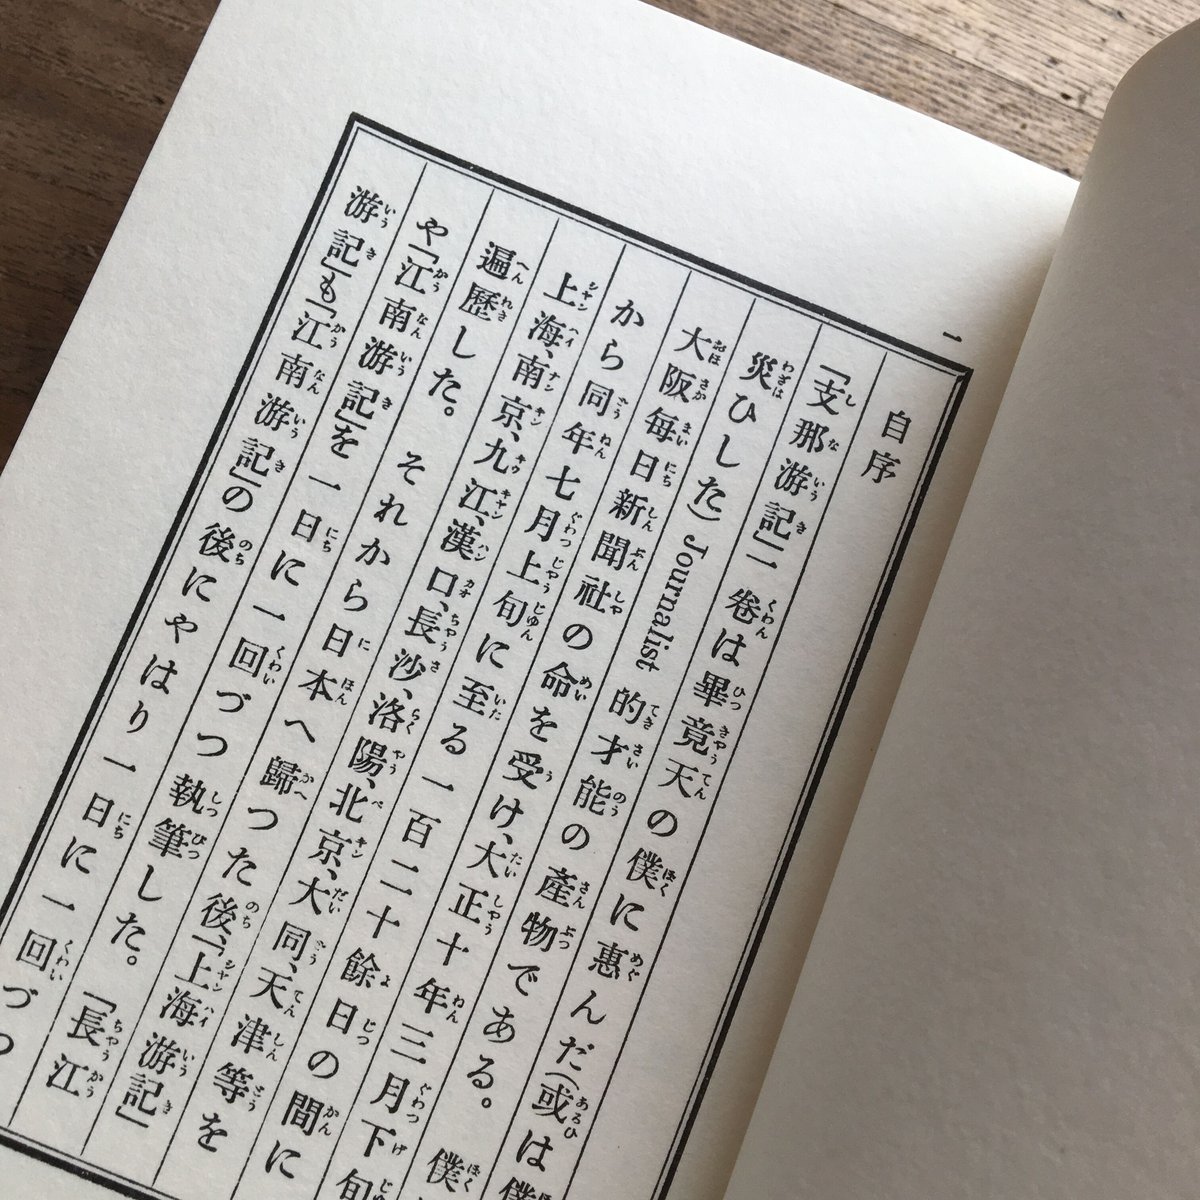 一
自序
「支那游記」一卷は畢竟天の僕に惠んだ(或は僕
災ひした) Journalist 的才能の產物である。 僕
大阪每日新聞社の命を受け、大正十年三月下旬
から同年七月上旬に至る一百二十餘日の間に
上海、南京、九江、漢口、長沙、洛陽、北京、大同、天津等を
遍歷した。 それから日本へ歸つた後、「上海游記」
や「江南游記」を一日に一回づつ執筆した。 「長江
游記」も「江南游記」の後にやはり一日に一回づつ